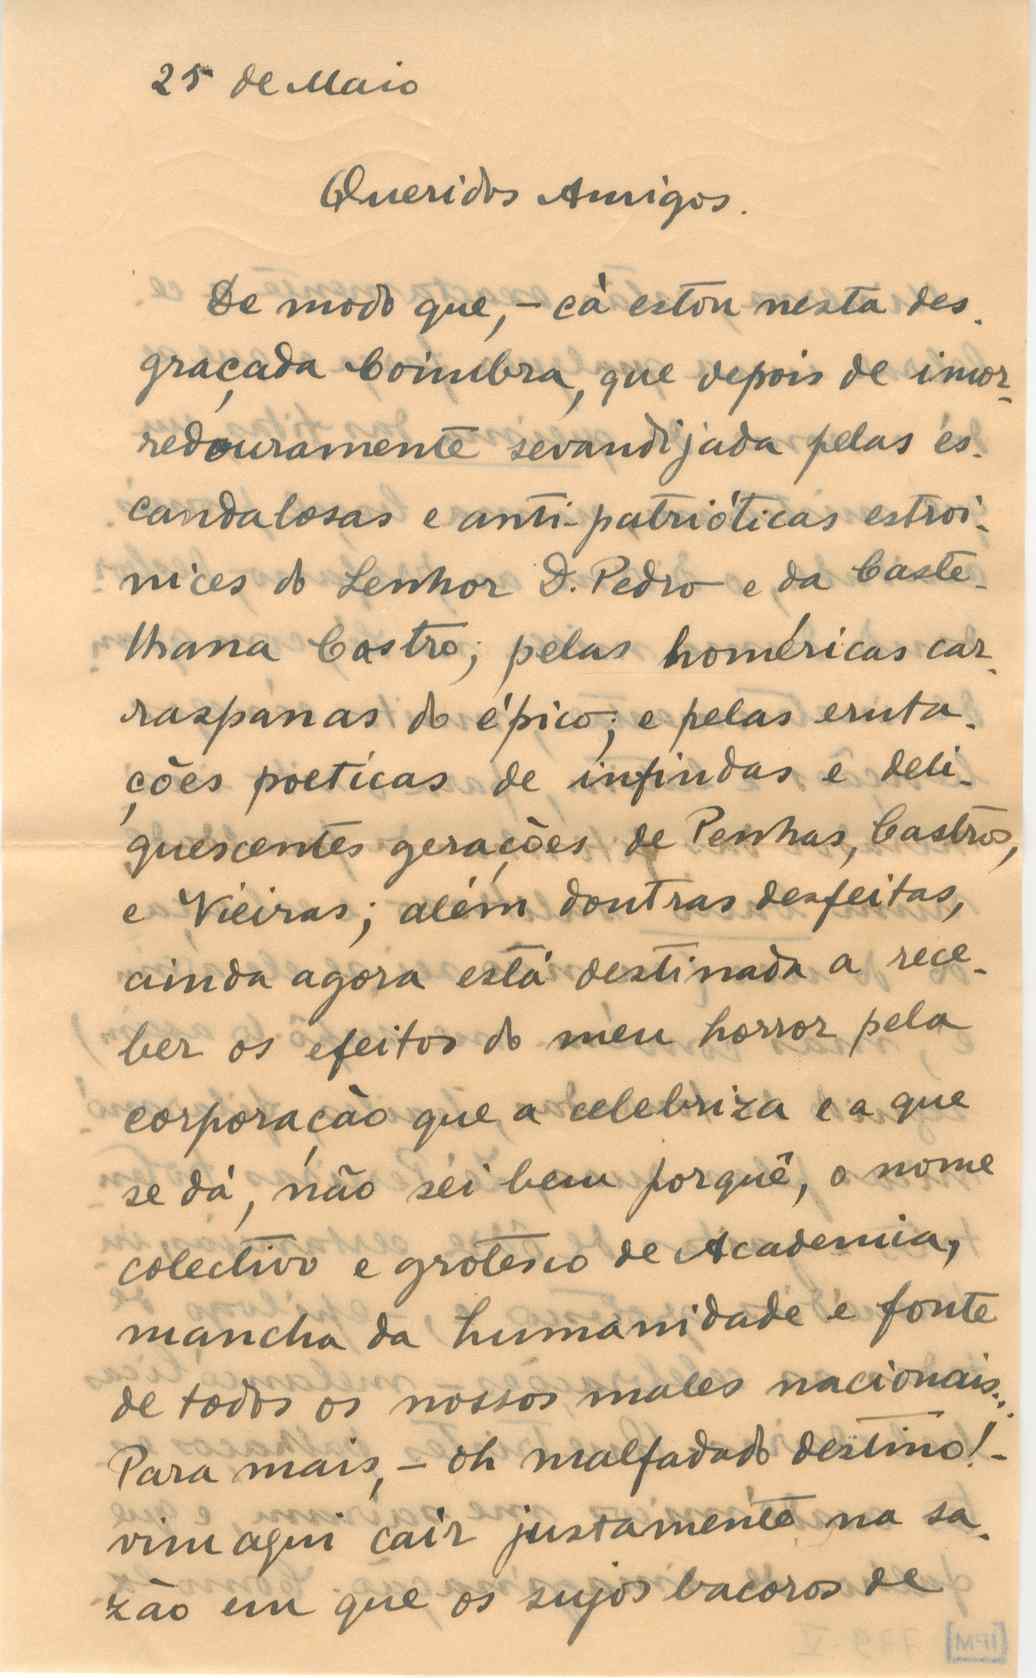 25 de Maio
Queridos Amigos.
De modo que, – cá estou nesta des-
graçada Coimbra, que depois de imor-
redouramente sevandijada pelas es-
candalosas e anti-patrióticas estroi-
nices do Senhor D. Pedro e da Caste-
lhana Castro; pelas homéricas car-
raspanas do épico; e pelas eruta-
ções poeticas de infindas e deli-
quescentes gerações de Penhas, Castros,
e Vieiras; além doutras desfeitas,
ainda agora está destinada a rece-
ber os efeitos do meu horror pela
corporação que a celebriza e a que
se dá, não sei bem porquê, o nome
colectivo e grotesco de Academia,
mancha da humanidade e fonte
de todos os nossos males nacionais...
Para mais, – oh malfadado destino! –
vim aqui cair justamente na sa-
zão em que os sujos bacoros de
[IPM]